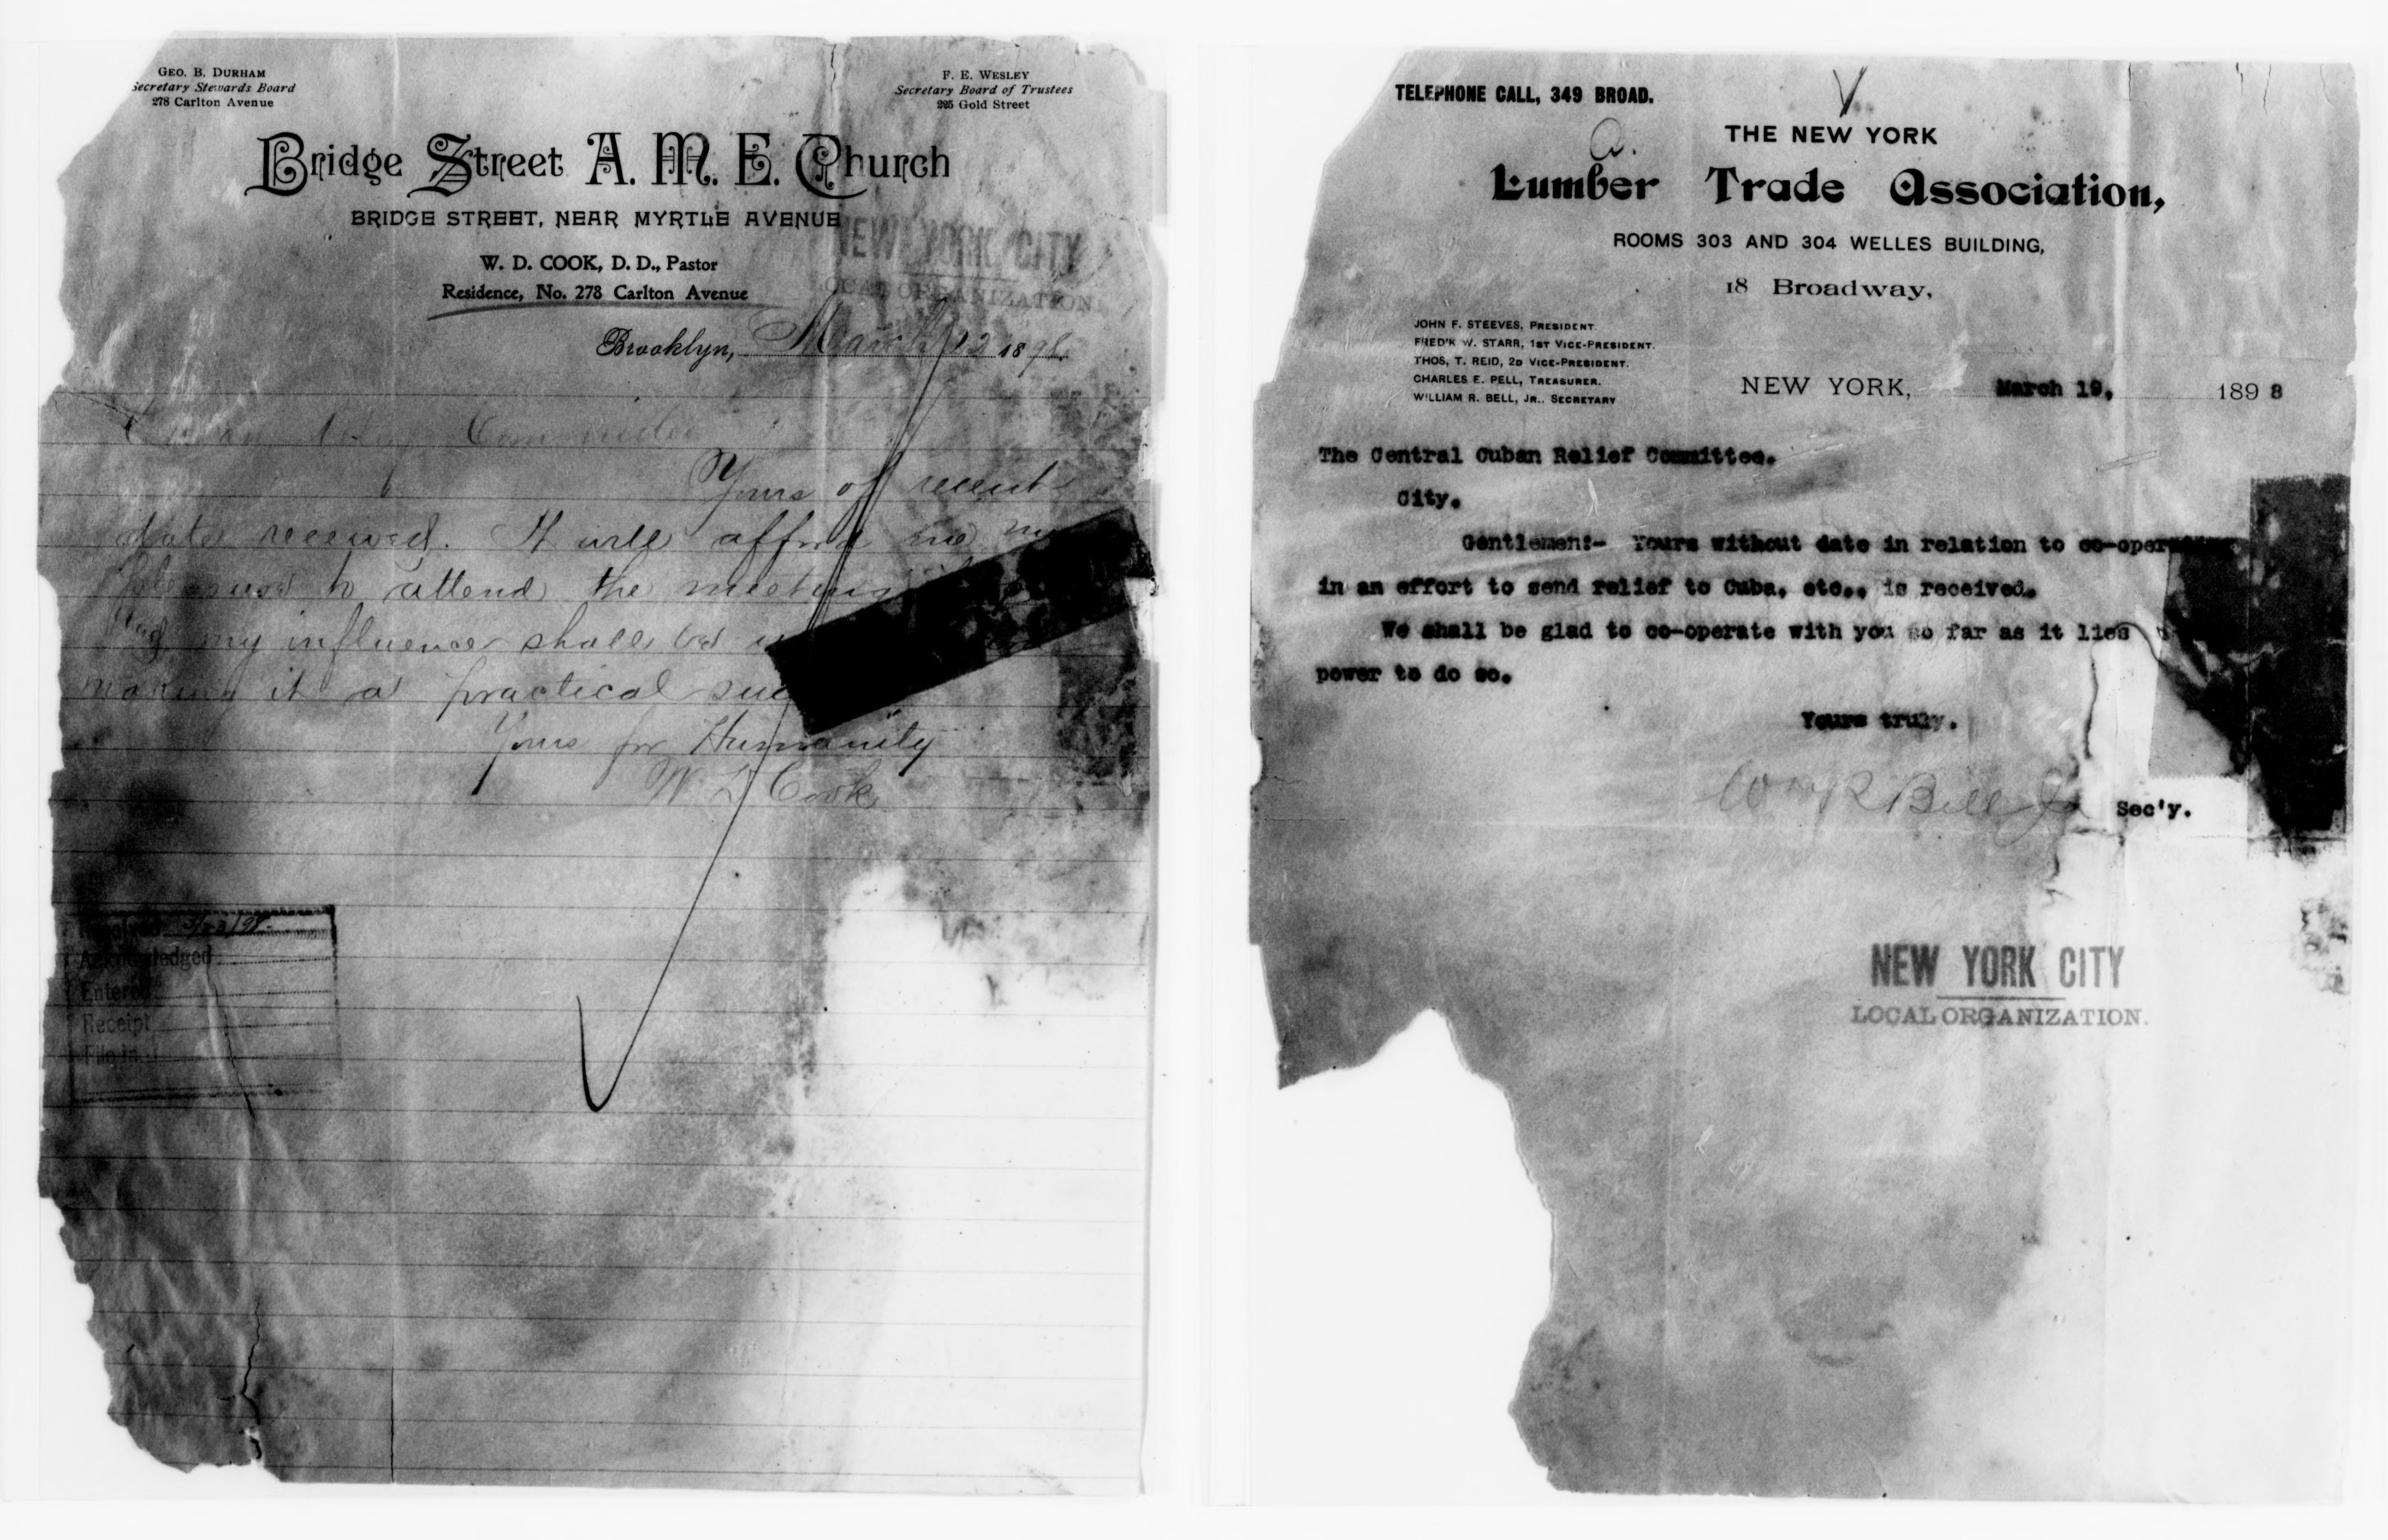 GEO. B. DURHAM
Secretary Stewards Board
278 Carlton Avenue
F. E. WESLEY
Secretary Board of Trustees
225 Gold Street
Bridge Street A. M. E. Church
BRIDGE STREET, NEAR MYRTLE AVENUE
W. D. COOK, D. D., Pastor
Residence, No. 278 Carlton Avenue
NEW YORK CITY
LOCAL ORGANIZATION
Brooklyn, March 22 1898.
Cuban Committee
Yours of recent
date received. It will afford me
pleasure to attend the meeting
my influence shall be
making it a practical
Yours for Humanity
W D Cook
Received 3/23/98.
Acknowledged
Entered
Receipt
File in
TELEPHONE CALL, 349 BROAD.
a.
THE NEW YORK
Lumber Trade Association,
ROOMS 303 AND 304 WELLES BUILDING,
18 Broadway,
JOHN F. STEEVES, PRESIDENT.
FRED'K W. STARR, 1ST VICE-PRESIDENT.
THOS, T. REID, 2D VICE-PRESIDENT.
CHARLES E. PELL, TREASURER.
WILLIAM R. BELL, JR.. SECRETARY
NEW YORK, March 19, 1898
The Central Cuban Relief Committee.
City.
Gentlemen:- Yours without date in relation to
in an effort to send relief to Cuba, etc., is received.
We shall be glad to co-operate with you so far as it lies
power to do so.
Yours truly.
Wm R Bell Jr Sec'y.
NEW YORK CITY
LOCAL ORGANIZATION.